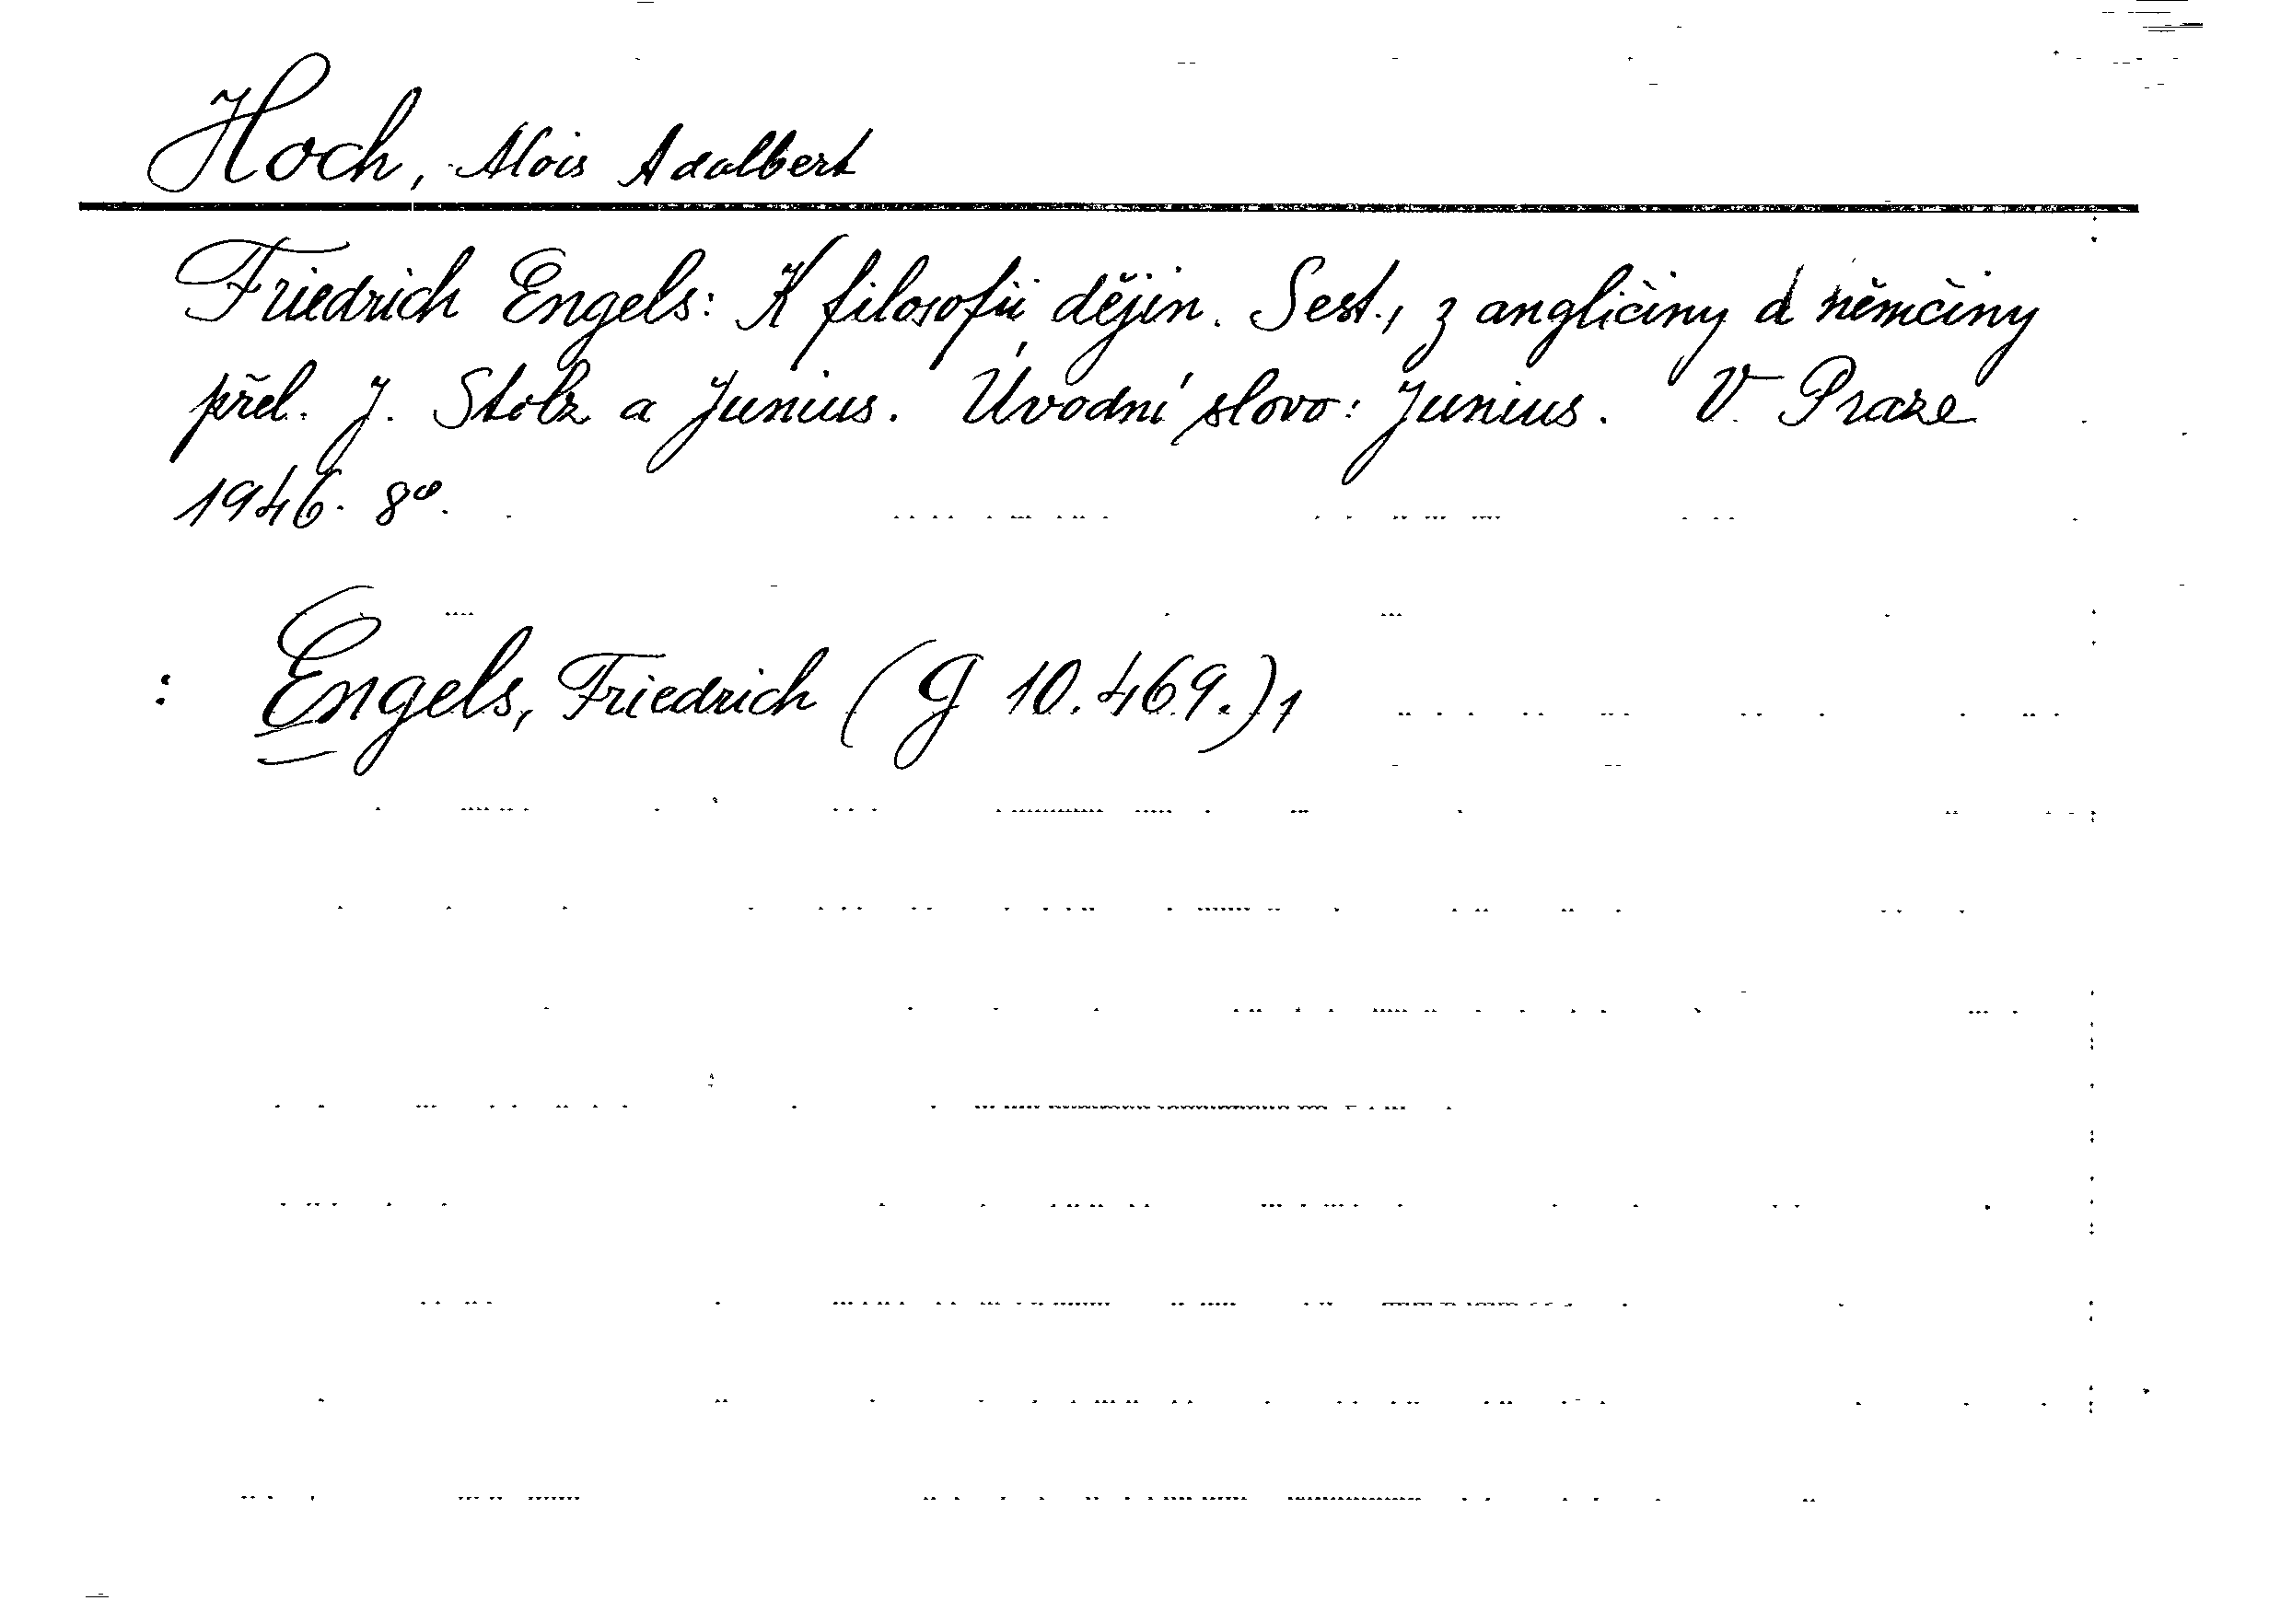 Hoch, Alois Adalbert
Friedrich Engels: K filosofii dějin. Sest., z angličiny a němčiny
přel. J. Stolz a Junius. Úvodní slovo: Junius. V Praze
1946. 8°.
: Engels, Friedrich (G 10.469.)1